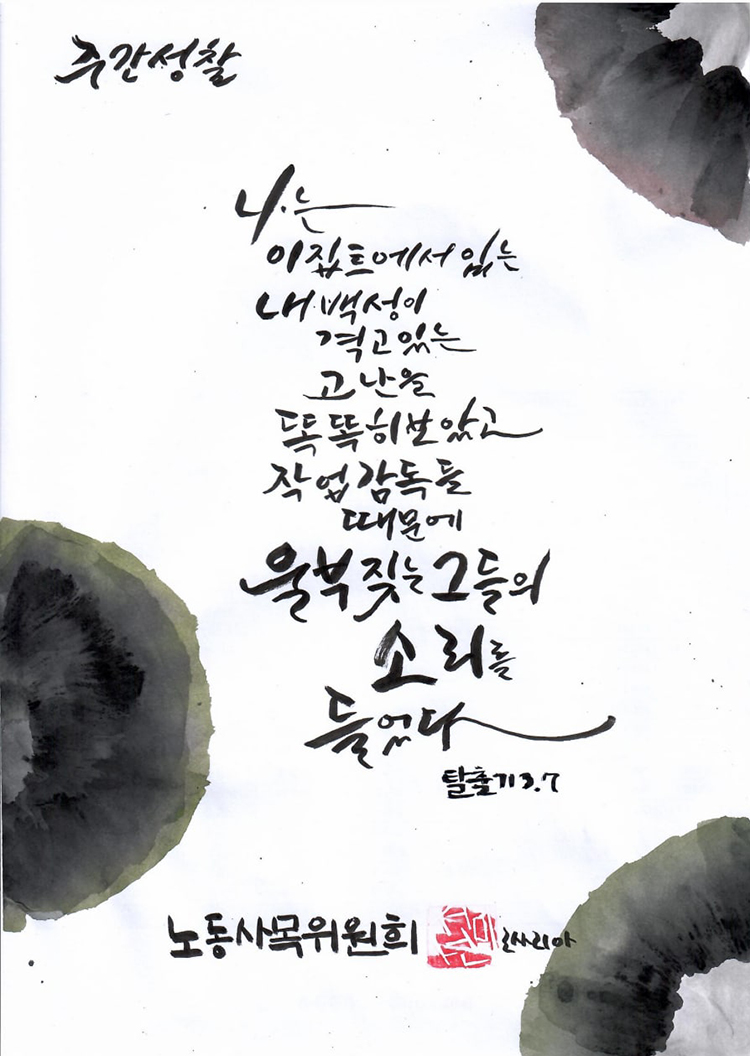 주간성찰
나는
이집트에서 있는
내 백성이
격고있는
고난을
똑똑히 보았고
작업 감독들
때문에
울부짖는 그들의
소리를
들었다
탈출기 3.7
노동사목위원회 로사리아